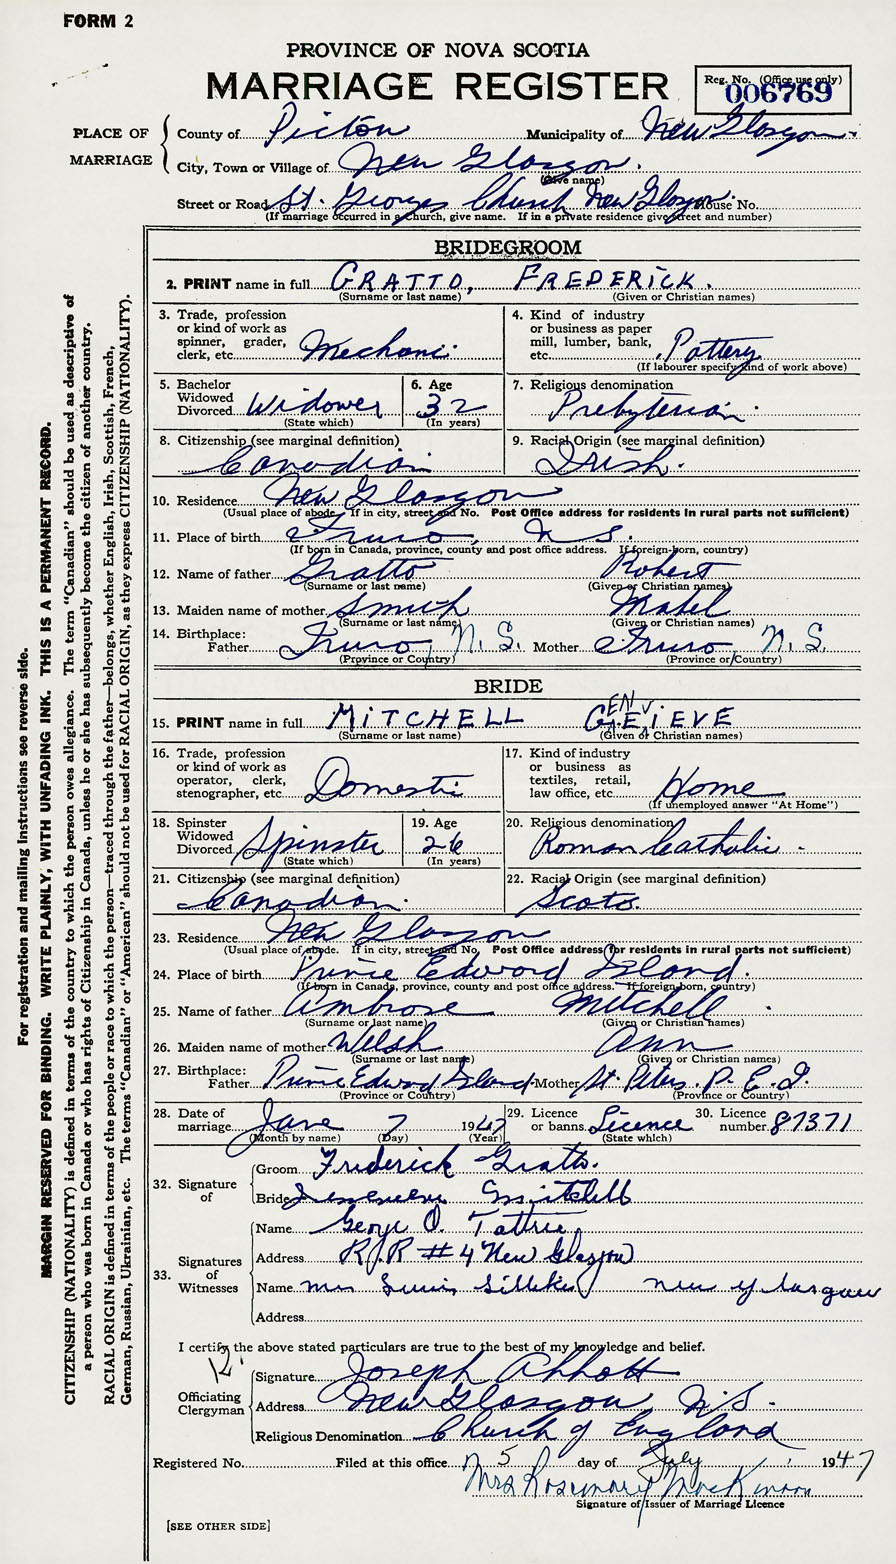 FORM 2
PROVINCE OF NOVA SCOTIA
MARRIAGE REGISTER
Reg. No. (Office use only)
006769
PLACE OF MARRIAGE
County of Pictou Municipality of New Glasgow
City, Town or Village of New Glasgow.
(Give name)
Street or Road St. Georges Church New Glasgow. House No.
(If marriage occurred in a church, give name. If in a private residence give street and number)
BRIDEGROOM
2. PRINT name in full GRATTO, FREDERICK.
(Surname or last name) (Given or Christian names)
3. Trade, profession or kind of work as spinner, grader, clerk, etc. Mechanic
4. Kind of industry or business as paper mill, lumber, bank, etc. Pottery
(If labourer specify kind of work above)
5. Bachelor Widowed Divorced Widower
(State which)
6. Age 32
(In years)
7. Religious denomination
Presbyterian.
8. Citizenship (see marginal definition)
Canadian
9. Racial Origin (see marginal definition)
Irish.
10. Residence New Glasgow
(Usual place of abode. If in city, street and No. Post Office address for residents in rural parts not sufficient)
11. Place of birth Truro, N S.
(If born in Canada, province, county and post office address. If foreign-born, country)
12. Name of father Gratto Robert
(Surname or last name) (Given or Christian names)
13. Maiden name of mother Smith Mabel
(Surname or last name) (Given or Christian names)
14. Birthplace:
Father Truro, N.S. Mother Truro, N.S.
(Province or Country) (Province or Country)
BRIDE
15. PRINT name in full MITCHELL GENEVIEVE
(Surname or last name) (Given or Christian names)
16. Trade, profession or kind of work as operator, clerk, stenographer, etc. Domestic
17. Kind of industry or business as textiles, retail, law office, etc. Home
(If unemployed answer "At Home")
18. Spinster Widowed Divorced Spinster
(State which)
19. Age 26
(In years)
20. Religious denomination
Roman Catholic -
21. Citizenship (see marginal definition)
Canadian.
22. Racial Origin (see marginal definition)
Scots.
23. Residence New Glasgow
(Usual place of abode. If in city, street and No. Post Office address for residents in rural parts not sufficient)
24. Place of birth Prince Edward Island.
(If born in Canada, province, county and post office address. If foreign-born, country)
25. Name of father Ambrose Mitchell
(Surname or last name) (Given or Christian names)
26. Maiden name of mother Welsh Ann
(Surname or last name) (Given or Christian names)
27. Birthplace:
Father Prince Edward Island Mother St. Peters. P. E. I.
(Province or Country) (Province or Country)
28. Date of marriage 7 1947
(Month by name) (Day) (Year)
29. Licence or banns Licence
(State which)
30. Licence number 87371
32. Signature of
Groom Frederick Gratto.
Bride Genevieve Mitchell
33. Signatures of Witnesses
Name George O. Tattrie
Address R.R #4 New Glasgow
Name Mrs New Glasgow
Address
I certify the above stated particulars are true to the best of my knowledge and belief.
Officiating Clergyman
Signature Joseph Abbott
Address New Glasgow N.S.
Religious Denomination Church of England
Registered No. Filed at this office 5 day of July 1947
Mrs Rosemary MacKinnon
Signature of Issuer of Marriage Licence
[SEE OTHER SIDE]
For registration and mailing instructions see reverse side.
MARGIN RESERVED FOR BINDING. WRITE PLAINLY, WITH UNFADING INK. THIS IS A PERMANENT RECORD.
CITIZENSHIP (NATIONALITY) is defined in terms of the country to which the person owes allegiance. The term "Canadian" should be used as descriptive of
a person who was born in Canada or who has rights of Citizenship in Canada, unless he or she has subsequently become the citizen of another country.
RACIAL ORIGIN is defined in terms of the people or race to which the person—traced through the father—belongs, whether English, Irish, Scottish, French,
German, Russian, Ukrainian, etc. The terms "Canadian" or "American" should not be used for RACIAL ORIGIN, as they express CITIZENSHIP (NATIONALITY).